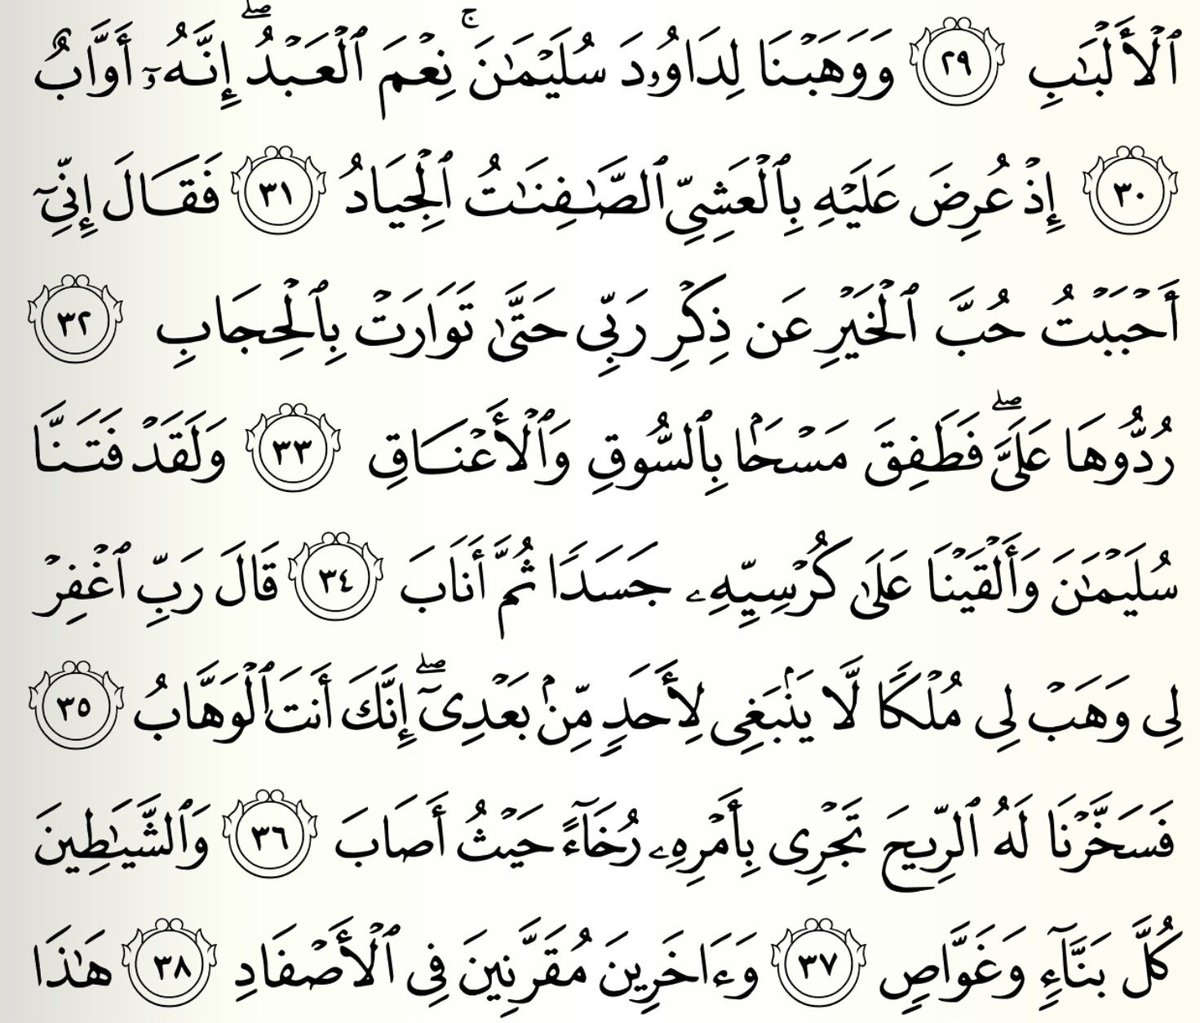 ٱلْأَلْبَٰبِ ٢٩ وَوَهَبْنَا لِدَاوُۥدَ سُلَيْمَٰنَ ۚ نِعْمَ ٱلْعَبْدُ ۖ إِنَّهُۥٓ أَوَّابٌ
٣٠ إِذْ عُرِضَ عَلَيْهِ بِٱلْعَشِىِّ ٱلصَّٰفِنَٰتُ ٱلْجِيَادُ ٣١ فَقَالَ إِنِّىٓ
أَحْبَبْتُ حُبَّ ٱلْخَيْرِ عَن ذِكْرِ رَبِّى حَتَّىٰ تَوَارَتْ بِٱلْحِجَابِ ٣٢
رُدُّوهَا عَلَىَّ ۖ فَطَفِقَ مَسْحًۢا بِٱلسُّوقِ وَٱلْأَعْنَاقِ ٣٣ وَلَقَدْ فَتَنَّا
سُلَيْمَٰنَ وَأَلْقَيْنَا عَلَىٰ كُرْسِيِّهِۦ جَسَدًا ثُمَّ أَنَابَ ٣٤ قَالَ رَبِّ ٱغْفِرْ
لِى وَهَبْ لِى مُلْكًا لَّا يَنۢبَغِى لِأَحَدٍ مِّنۢ بَعْدِىٓ ۖ إِنَّكَ أَنتَ ٱلْوَهَّابُ ٣٥
فَسَخَّرْنَا لَهُ ٱلرِّيحَ تَجْرِى بِأَمْرِهِۦ رُخَآءً حَيْثُ أَصَابَ ٣٦ وَٱلشَّيَٰطِينَ
كُلَّ بَنَّآءٍ وَغَوَّاصٍ ٣٧ وَءَاخَرِينَ مُقَرَّنِينَ فِى ٱلْأَصْفَادِ ٣٨ هَٰذَا